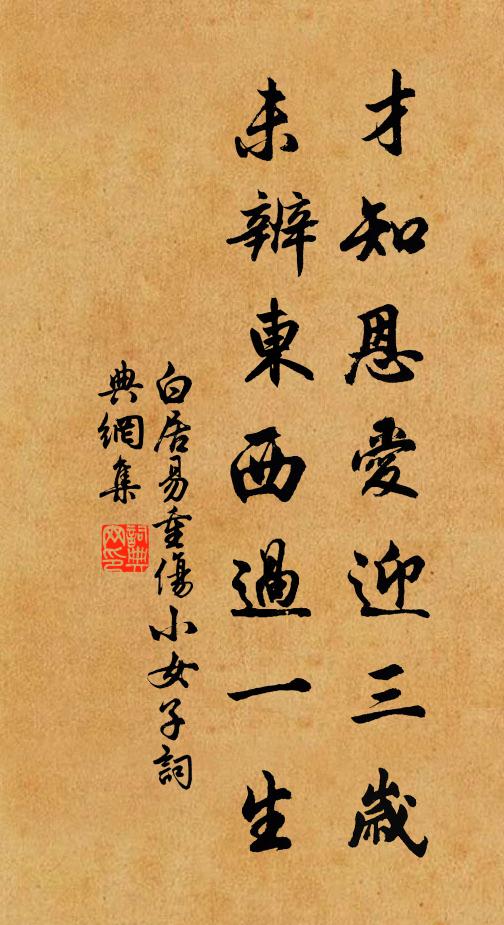 才知恩愛迎三歲
未辨東西過一生
白居易重傷小女子詞
典網集
詞典
网印